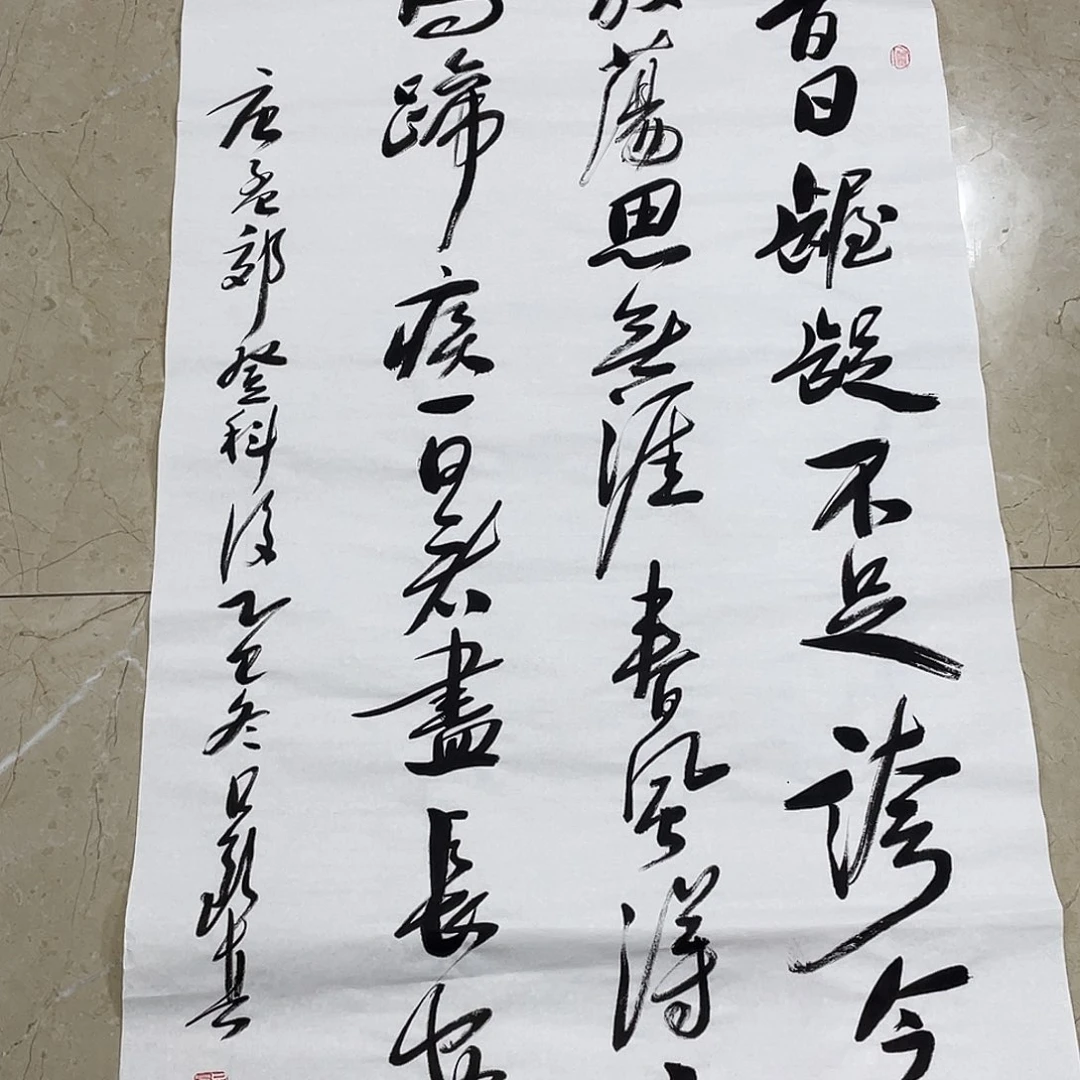 昔日齷齪不足誇今
放蕩思無涯春風得
馬蹄疾一日看盡長安
唐孟郊登科後乙巳冬日